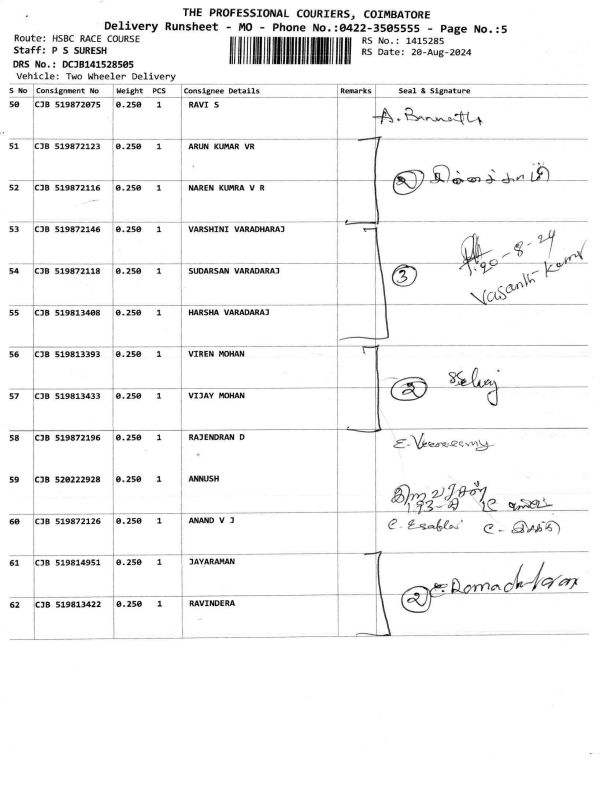 THE PROFESSIONAL COURIERS, COIMBATORE
Delivery Runsheet - MO - Phone No.:0422-3505555 - Page No.:5
Route: HSBC RACE COURSE
RS No.: 1415285
Staff: P S SURESH
RS Date: 20-Aug-2024
DRS No.: DCJB141528505
Vehicle: Two Wheeler Delivery
S No Consignment No Weight PCS Consignee Details Remarks Seal & Signature
50 CJB 519872075 0.250 1 RAVI S
51 CJB 519872123 0.250 1 ARUN KUMAR VR
2
52 CJB 519872116 0.250 1 NAREN KUMRA V R
53 CJB 519872146 0.250 1 VARSHINI VARADHARAJ
20-8-24
54 CJB 519872118 0.250 1 SUDARSAN VARADARAJ 3
Vasanth Kumar
55 CJB 519813408 0.250 1 HARSHA VARADARAJ
56 CJB 519813393 0.250 1 VIREN MOHAN
2
57 CJB 519813433 0.250 1 VIJAY MOHAN
58 CJB 519872196 0.250 1 RAJENDRAN D
59 CJB 520222928 0.250 1 ANNUSH
60 CJB 519872126 0.250 1 ANAND V J
61 CJB 519814951 0.250 1 JAYARAMAN
2
62 CJB 519813422 0.250 1 RAVINDERA